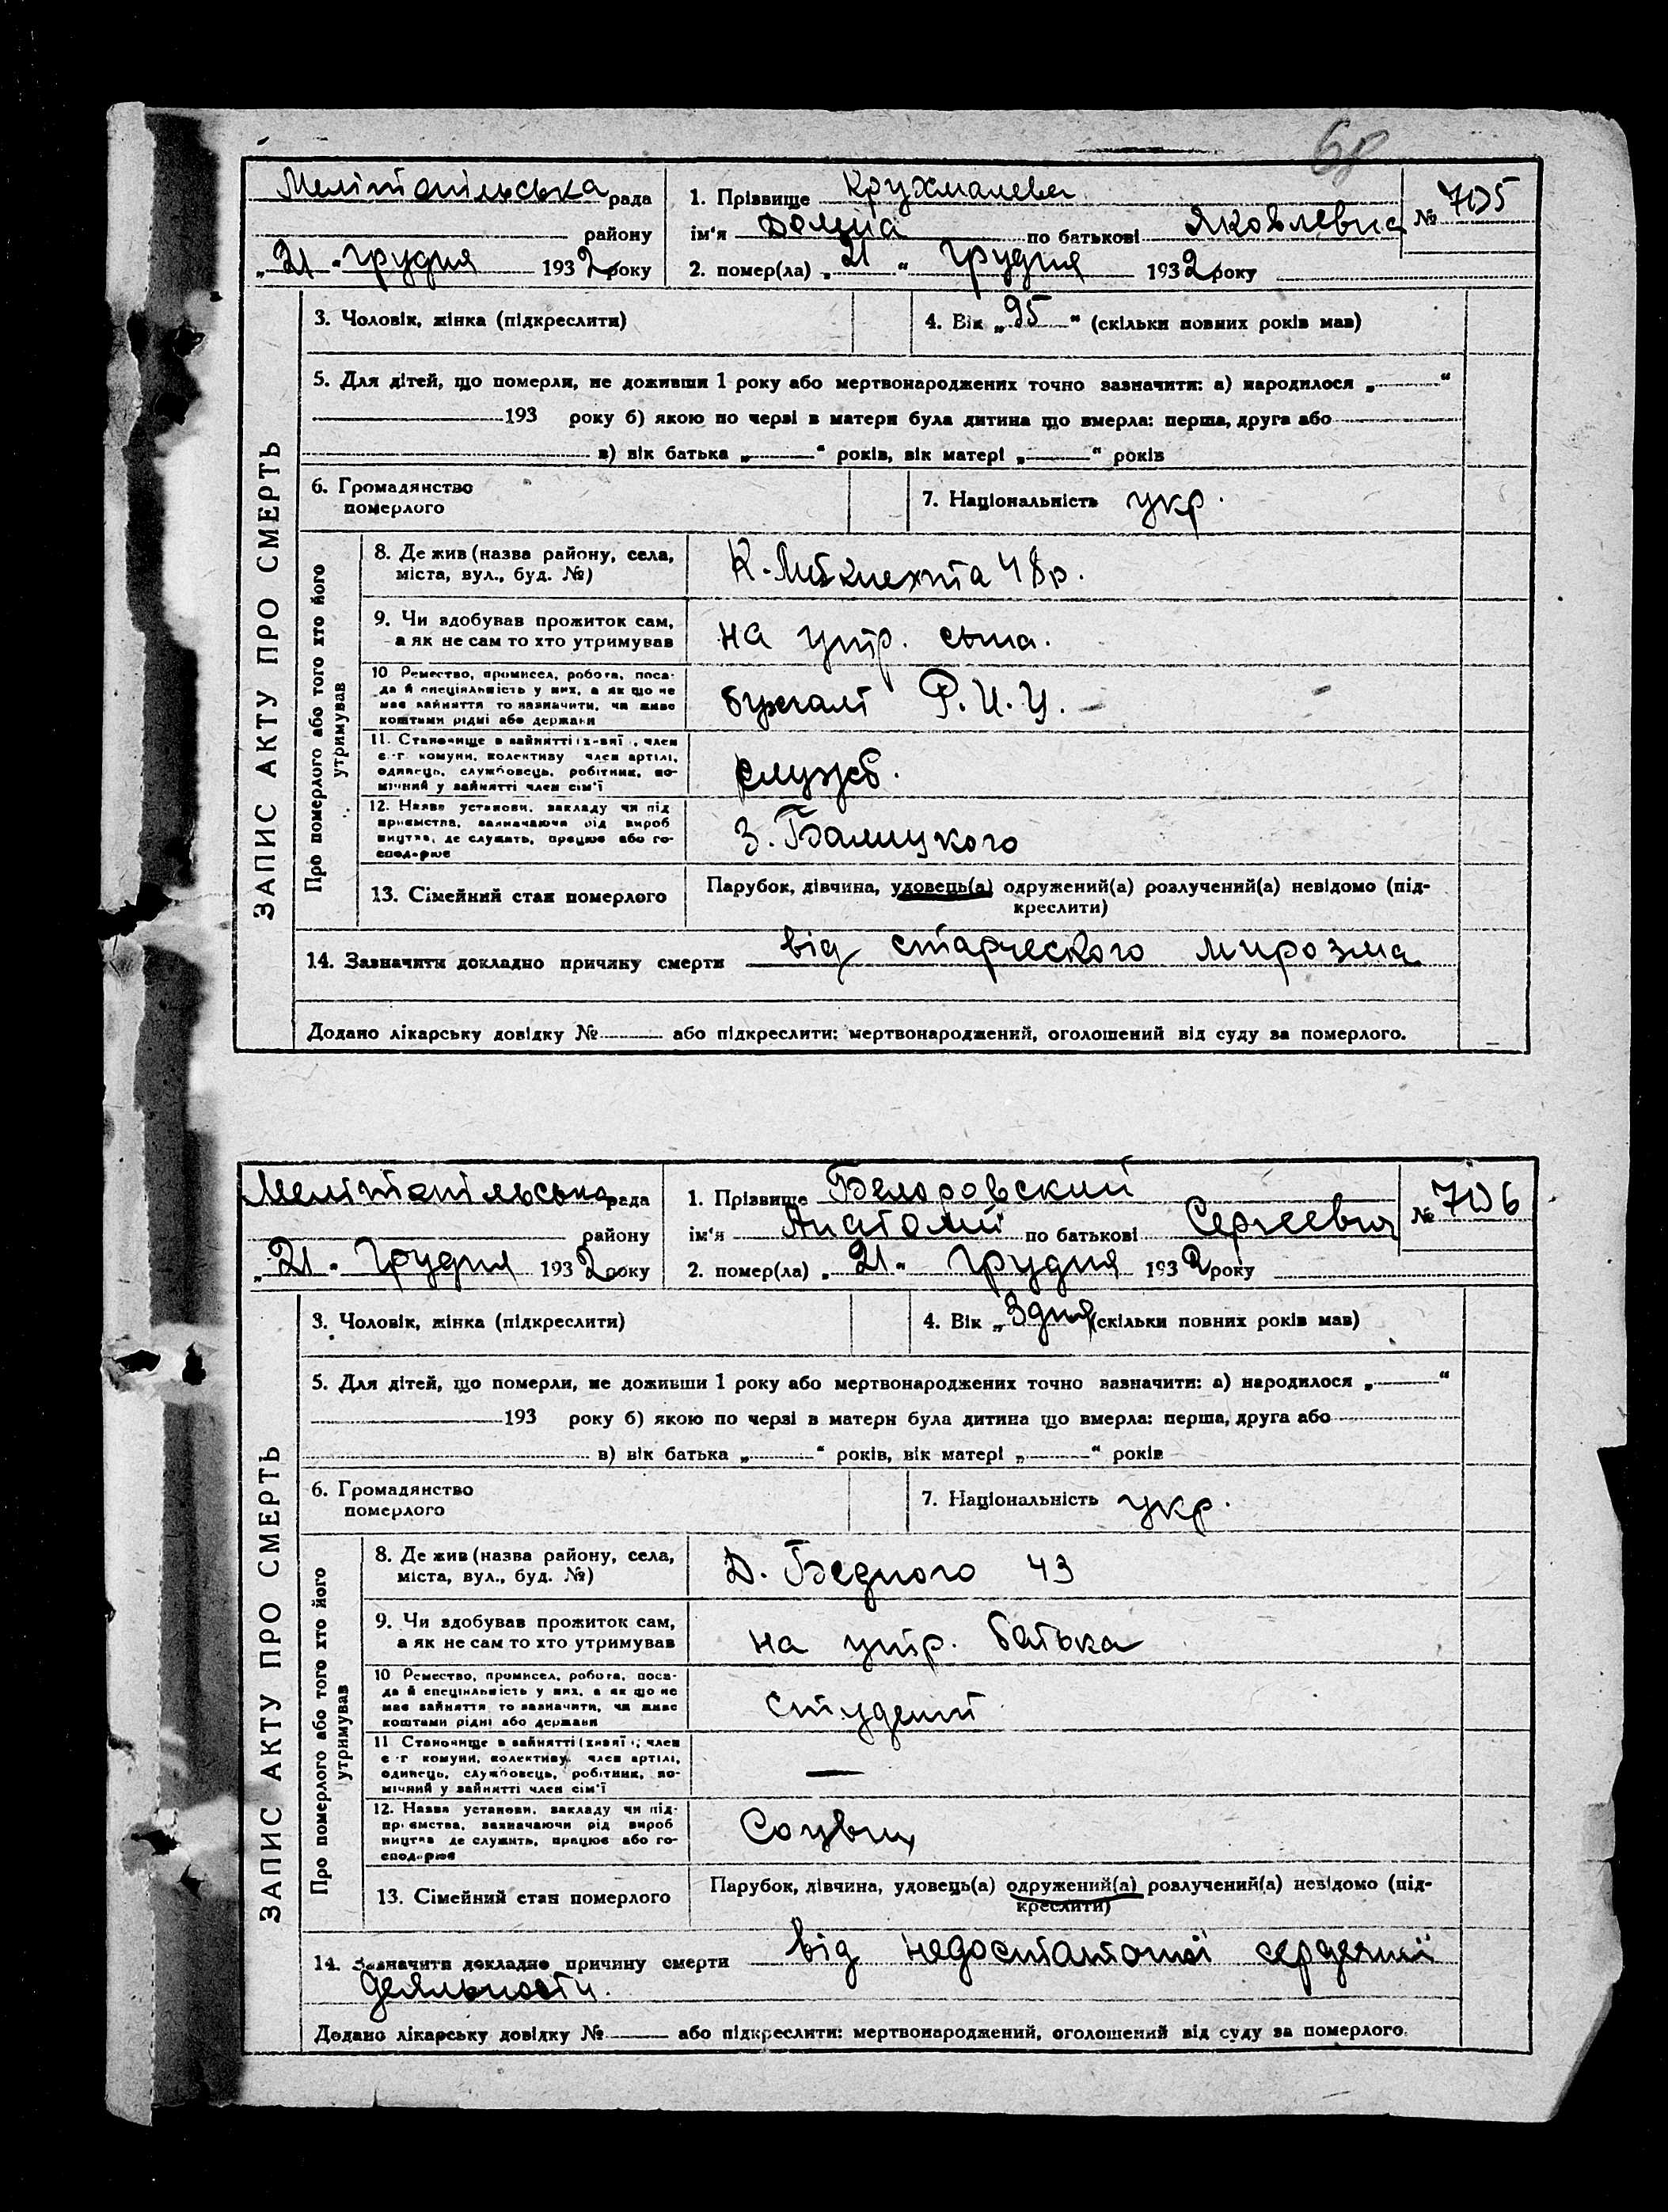 68
Мелітопільська рада
району
„21" грудня 1932 року
1. Прізвище Крухмалева
ім'я Домна по батькові Яковлевна
2. помер(ла) „21" грудня 1932 року
№ 705
ЗАПИС АКТУ ПРО СМЕРТЬ
3. Чоловік, жінка (підкреслити)
4. Вік „95" (скільки повних років мав)
5. Для дітей, що померли, не доживши 1 року або мертвонароджених точно зазначити: а) народилося „ "
193 року б) якою по черзі в матери була дитина що вмерла: перша, друга або
в) вік батька „ " років, вік матері „ " років
6. Громадянство
померлого
7. Національність укр.
Про померлого або того хто його
утримував
8. Де жив (назва району, села,
міста, вул., буд. №)
К. Лібкнехта 48р.
9. Чи здобував прожиток сам,
а як не сам то хто утримував
на утр. сына.
10 Ремество, промисел, робота, поса-
да й спеціяльність у них, а як що не
має зайняття то зазначити, чи живе
коштами рідні або держави
бухгалт Р.И.У.
11. Становище в зайнятті (х-зяї , член
с-г комуни, колективу член артілі,
одинець, службовець, робітник, по-
мічний у зайнятті член сім'ї
служб.
12. Назва установи, закладу чи під
приємства, зазначаючи рід вироб
ництва, де служить, працює або го-
сподарює
З. Балицкого
13. Сімейний стан померлого
Парубок, дівчина, удовець(а) одружений(а) розлучений(а) невідомо (під-
креслити)
14. Зазначити докладно причину смерти від старческого мирозма
Додано лікарську довідку № або підкреслити: мертвонароджений, оголошений від суду за померлого.
Мелітопільська рада
району
„21" грудня 1932 року
1. Прізвище
ім'я Анатолий по батькові Сергеевич
2. помер(ла) „21" грудня 1932 року
№ 706
ЗАПИС АКТУ ПРО СМЕРТЬ
3. Чоловік, жінка (підкреслити)
4. Вік „3 дня (скільки повних років мав)
5. Для дітей, що померли, не доживши 1 року або мертвонароджених точно зазначити: а) народилося „ "
193 року б) якою по черзі в матери була дитина що вмерла: перша, друга або
в) вік батька „ " років, вік матері „ " років
6. Громадянство
померлого
7. Національність укр.
Про померлого або того хто його
утримував
8. Де жив (назва району, села,
міста, вул., буд. №)
Д. Бедного 43
9. Чи здобував прожиток сам,
а як не сам то хто утримував
на утр. батька
10 Ремество, промисел, робота, поса-
да й спеціяльність у них, а як що не
має зайняття то зазначити, чи живе
коштами рідні або держави
студент
11 Становище в зайнятті (хазяї , член
с-г комуни, колективу член артілі,
одинець, службовець, робітник, по-
мічний у зайнятті член сім'ї
—
12. Назва установи, закладу чи під-
приємства, зазначаючи рід вироб
ництва де служить, працює або го-
сподарює
13. Сімейний стан померлого
Парубок, дівчина, удовець(а) одружений(а) розлучений(а) невідомо (під-
креслити)
14. Зазначити докладно причину смерти від недостаточної сердечної
деяльности.
Додано лікарську довідку № або підкреслити: мертвонароджений, оголошений від суду за померлого.